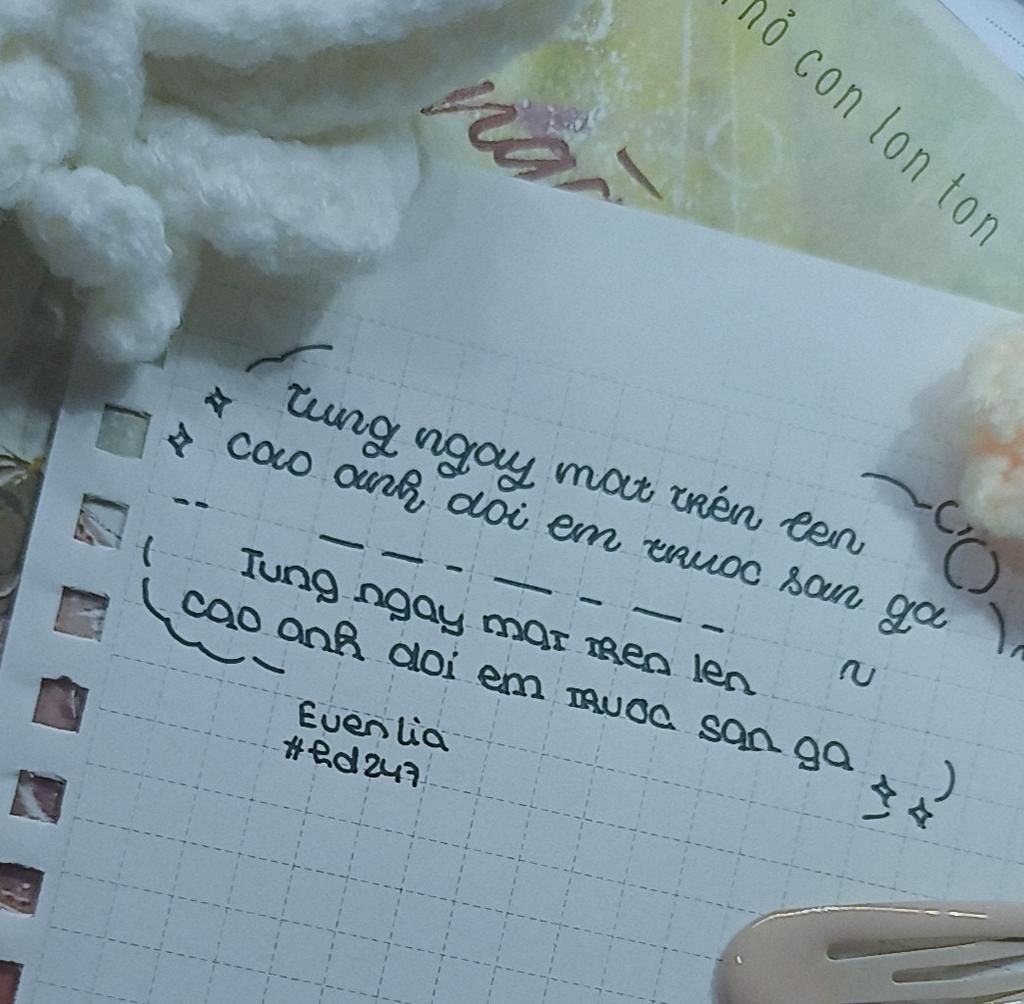 nỏ con lon ton
Tung ngay mat trén len
cao anh doi em truoc san ga
Tung ngay mat tren len
cao anh doi em truoc san ga
Evenlia
#hd247